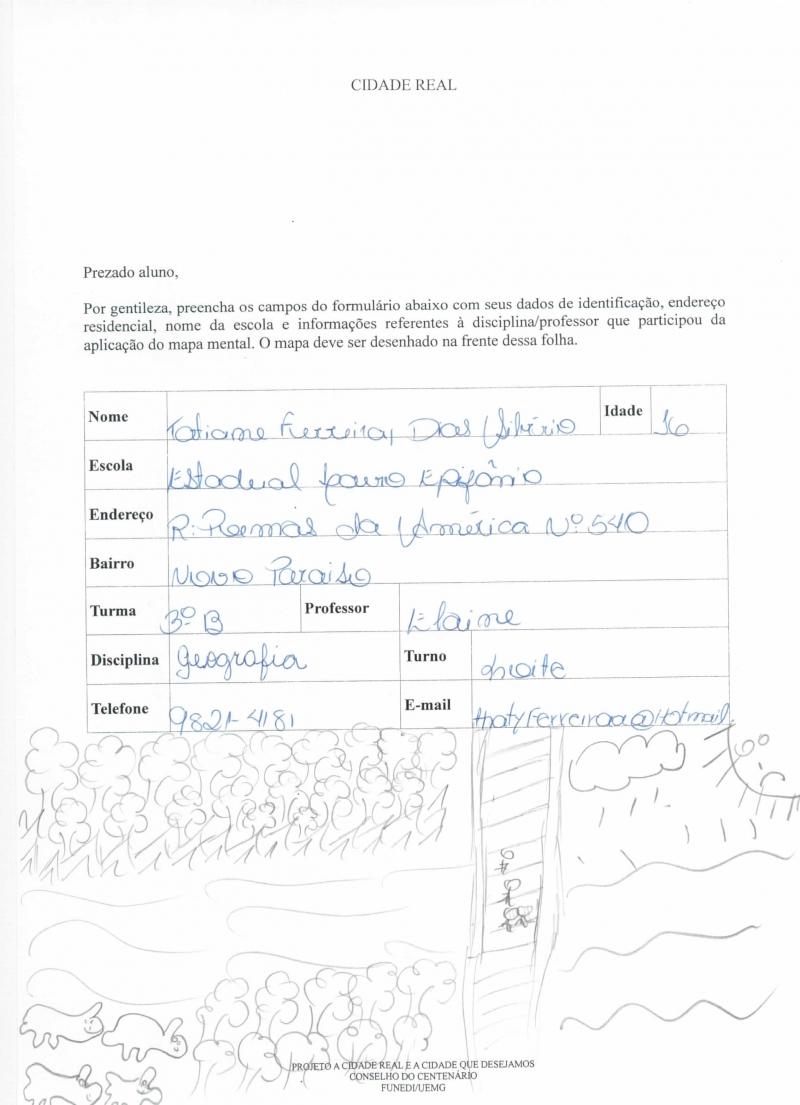 CIDADE REAL
Prezado aluno,
Por gentileza, preencha os campos do formulário abaixo com seus dados de identificação, endereço
residencial, nome da escola e informações referentes à disciplina/professor que participou da
aplicação do mapa mental. O mapa deve ser desenhado na frente dessa folha.
Nome Tatiane Ferreira Das Silvério Idade 16
Escola Estadual Epifânio
Endereço R: da América Nº 540
Bairro Novo Paraiso
Turma 3º B Professor Elaine
Disciplina geografia Turno noite
Telefone 9821-4181 E-mail thatyFerreiraa@Hotmail.
PROJETO A CIDADE REAL E A CIDADE QUE DESEJAMOS
CONSELHO DO CENTENÁRIO
FUNEDI/UEMG